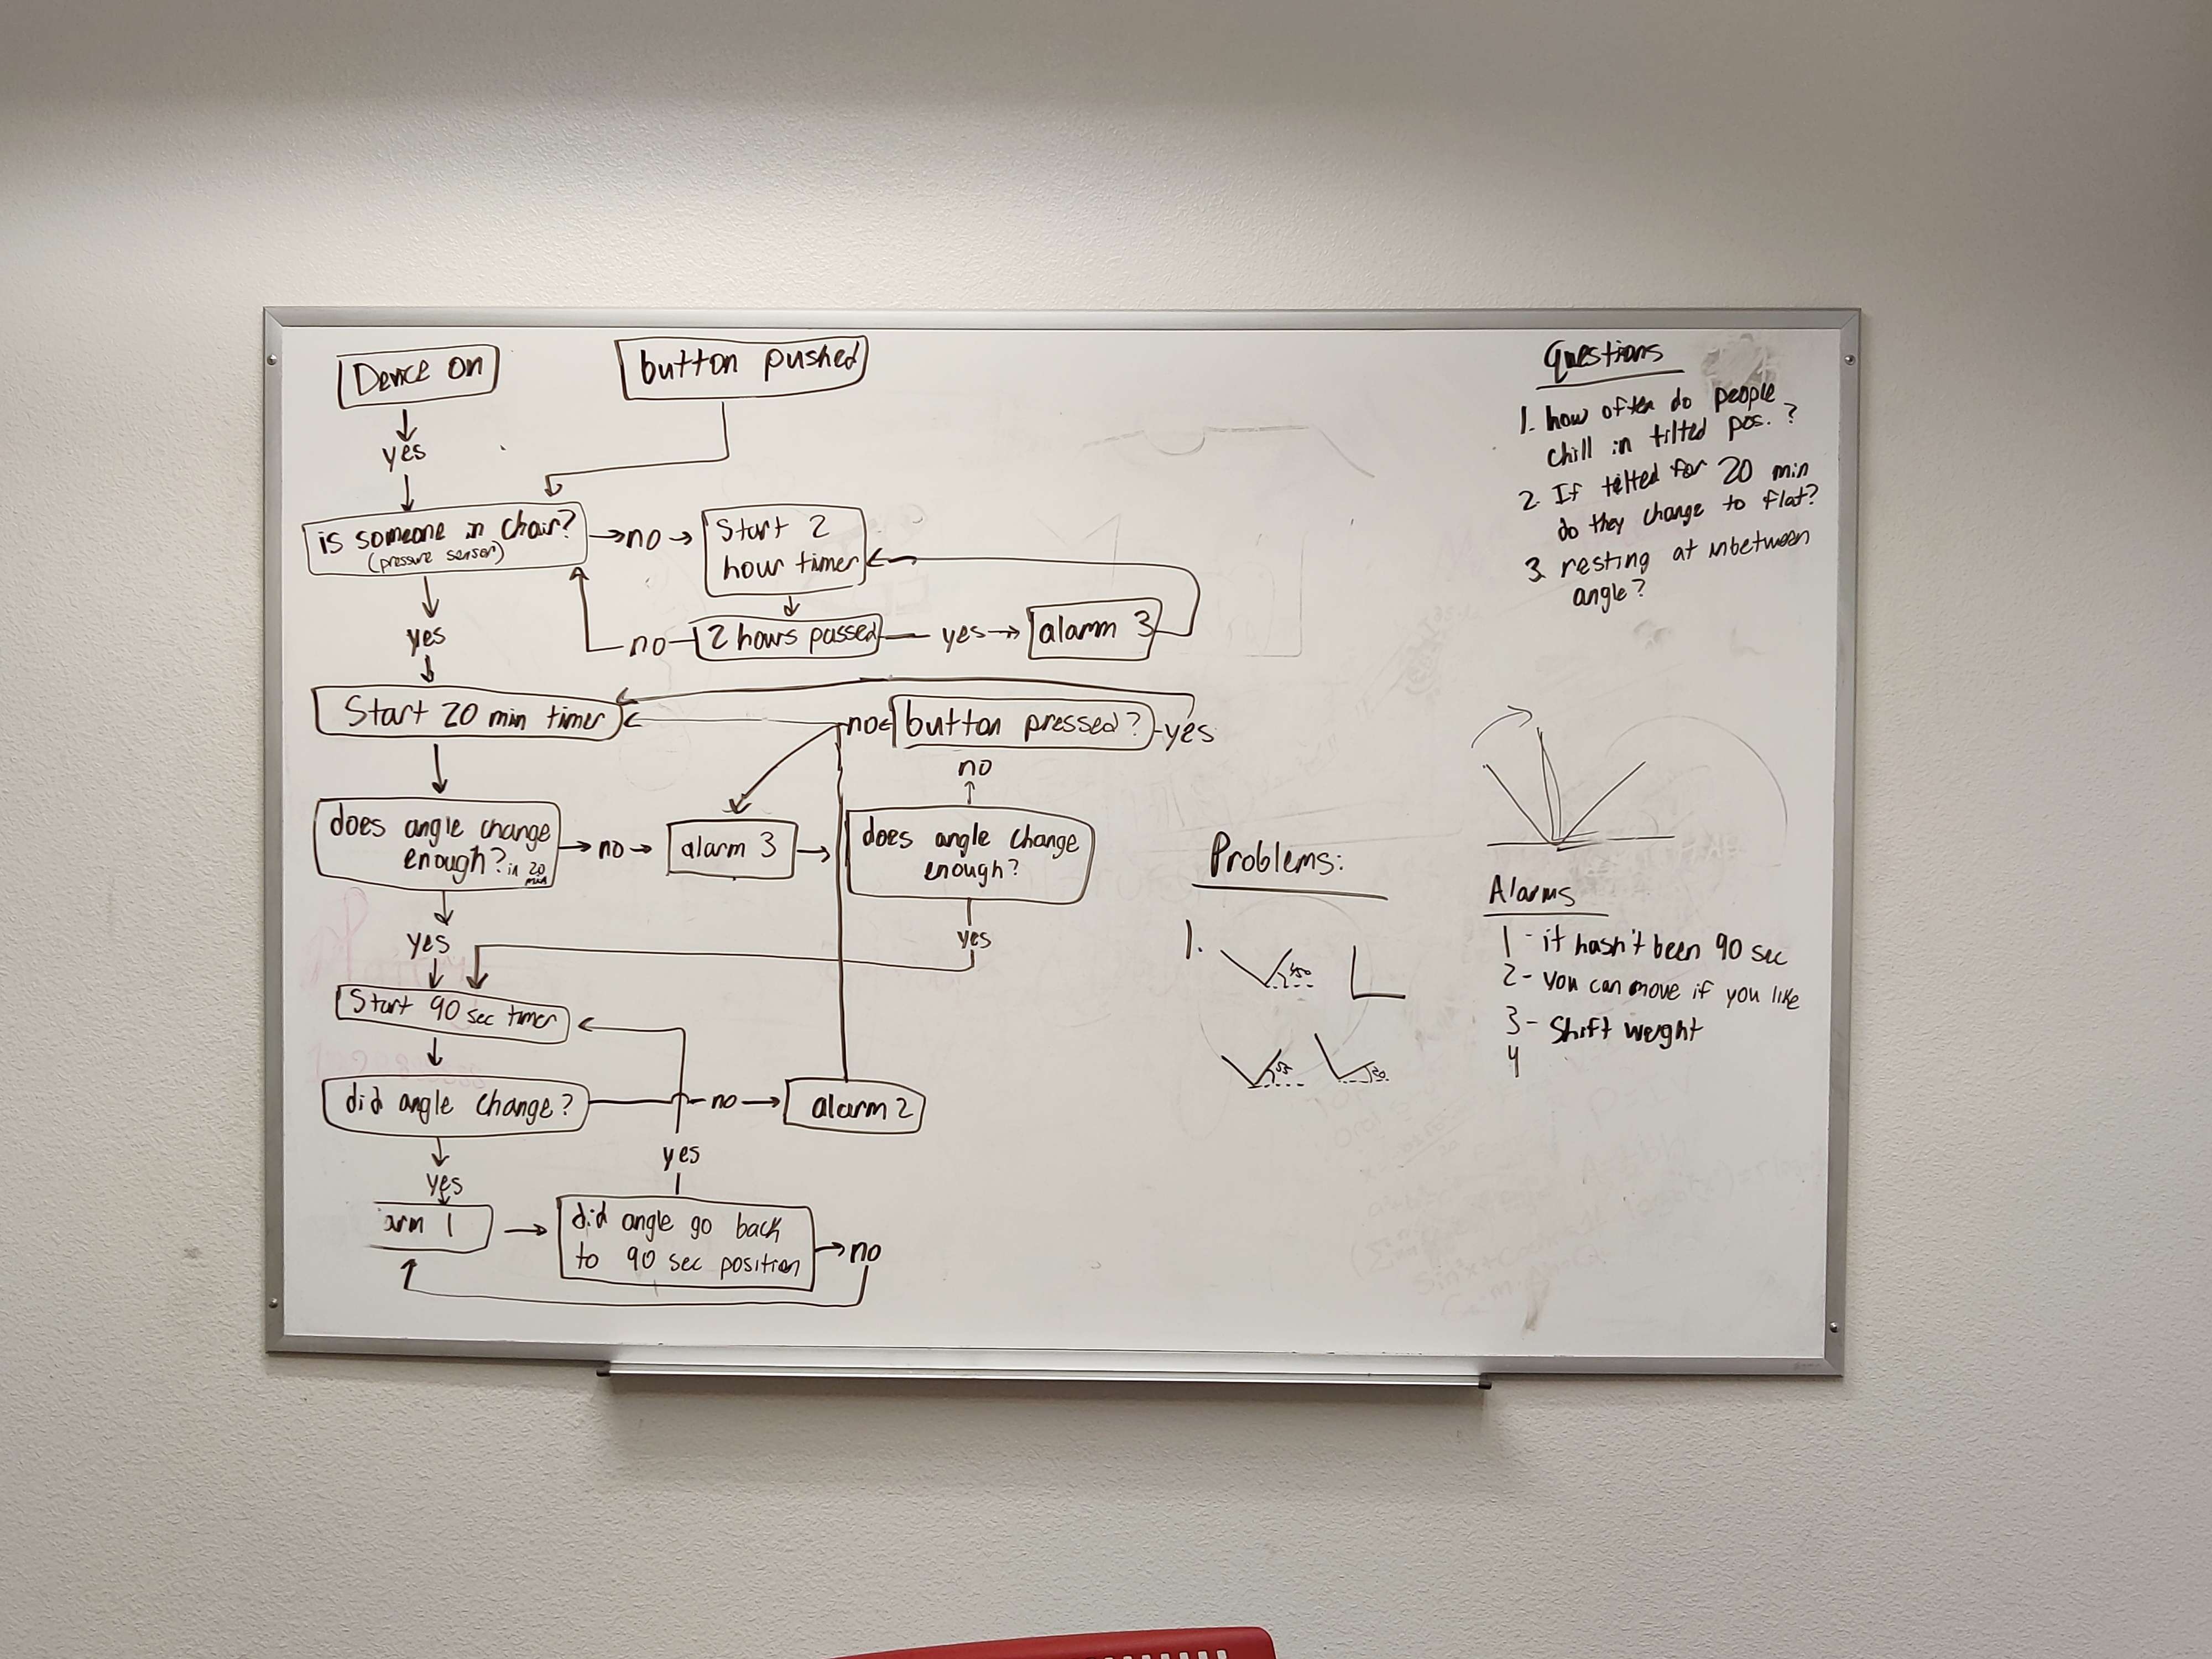 Device on
button pushed
yes
is someone in chair?
(pressure sensor)
no
Start 2
hour timer
yes
no
2 hours passed
yes
alarm 3
Start 20 min timer
no
button pressed?
yes
no
does angle change
enough? in 20
min
no
alarm 3
does angle change
enough?
yes
yes
Start 90 sec timer
did angle change?
no
alarm 2
yes
yes
arm 1
did angle go back
to 90 sec position
no
Questions
1. how often do people
chill in tilted pos.?
2. If tilted for 20 min
do they change to flat?
3. resting at inbetween
angle?
Problems:
1.
Alarms
1 - it hasn't been 90 sec
2 - you can move if you like
3 - Shift weight
4